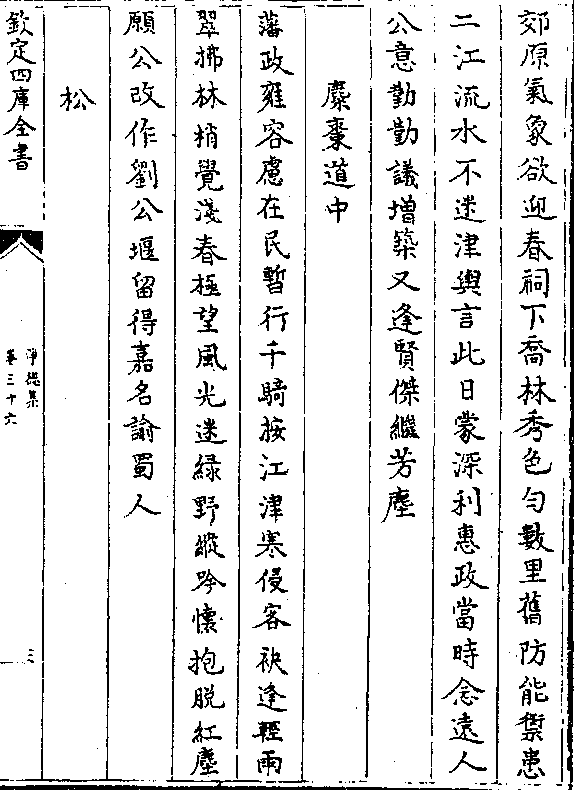 郊原氣象欲迎春祠下喬林秀色勻數里舊防能禦患
二江流水不迷津輿言此日蒙深利惠政當時念遠人
公意勤勤議增築又逢賢傑繼芳塵
麋棗道中
藩政雍容慮在民暫行千騎按江津寒侵客袂逢輕雨
翠拂林梢覺淺春極望風光迷綠野縱吟懷抱脫紅塵
願公改作劉公堰留得嘉名諭蜀人
松
欽定四庫全書
淨德集
卷三十六
三